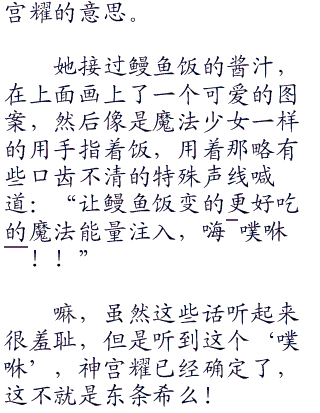 宫耀的意思。
她接过鳗鱼饭的酱汁，
在上面画上了一个可爱的图
案，然后像是魔法少女一样
的用手指着饭，用着那略有
些口齿不清的特殊声线喊
道：“让鳗鱼饭变的更好吃
的魔法能量注入，嗨¯噗咻
——！！”
嘛，虽然这些话听起来
很羞耻，但是听到这个‘噗
咻’，神宫耀已经确定了，
这不就是东条希么！